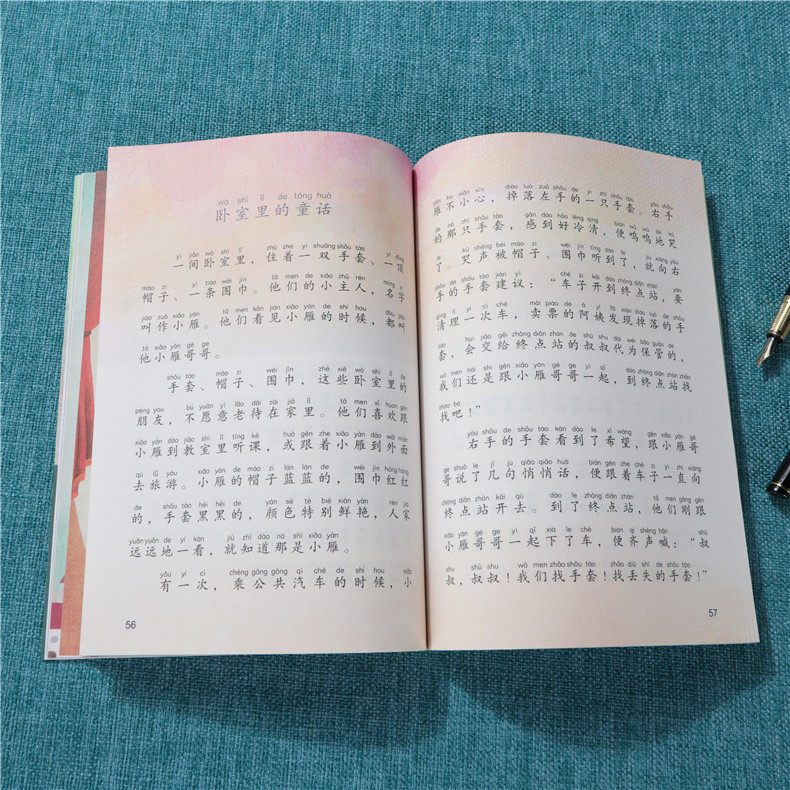 wò shì lǐ de tóng huà
卧室里的童话
yì jiān wò shì lǐ zhù zhe yì shuāng shǒu tào yì dǐng
一间卧室里，住着一双手套、一顶
mào zi yì tiáo wéi jīn tā men de xiǎo zhǔ rén míng zi
帽子、一条围巾。他们的小主人，名字
jiào zuò xiǎo yàn tā men kàn jiàn xiǎo yàn de shí hou dōu jiào
叫作小雁。他们看见小雁的时候，都叫
tā xiǎo yàn gē ge
他小雁哥哥。
shǒu tào mào zi wéi jīn zhè xiē wò shì lǐ de
手套、帽子、围巾，这些卧室里的
péng you bú yuàn yì lǎo dāi zài jiā lǐ tā men xǐ huan gēn
朋友，不愿意老待在家里。他们喜欢跟
xiǎo yàn dào jiào shì lǐ tīng kè huò gēn zhe xiǎo yàn dào wài miàn
小雁到教室里听课，或跟着小雁到外面
qù lǚ yóu xiǎo yàn de mào zi lán lán de wéi jīn hóng hóng
去旅游。小雁的帽子蓝蓝的，围巾红红
de shǒu tào hēi hēi de yán sè tè bié xiān yàn rén jia
的，手套黑黑的，颜色特别鲜艳，人家
yuǎn yuǎn de yí kàn jiù zhī dào nà shì xiǎo yàn
远远地一看，就知道那是小雁。
yǒu yí cì chéng gōng gòng qì chē de shí hou xiǎo
有一次，乘公共汽车的时候，小
56
yàn bù xiǎo xīn diào luò zuǒ shǒu de yì zhī shǒu tào yòu shǒu
雁不小心，掉落左手的一只手套。右手
de nà zhī shǒu tào gǎn dào hǎo lěng qīng biàn wū wū de kū
的那只手套，感到好冷清，便呜呜地哭
le kū shēng bèi mào zi wéi jīn tīng dào le jiù xiàng yòu
了。哭声被帽子、围巾听到了，就向右
shǒu de shǒu tào jiàn yì chē zi kāi dào zhōng diǎn zhàn yào
手的手套建议：“车子开到终点站，要
qīng lǐ yí cì chē mài piào de ā yí fā xiàn diào luò de shǒu
清理一次车，卖票的阿姨发现掉落的手
tào huì jiāo gěi zhōng diǎn zhàn de shū shu dài wéi bǎo guǎn de
套，会交给终点站的叔叔代为保管的，
wǒ men hái shi gēn xiǎo yàn gē ge yì qǐ dào zhōng diǎn zhàn zhǎo
我们还是跟小雁哥哥一起，到终点站找
zhǎo ba
找吧！”
yòu shǒu de shǒu tào kàn dào le xī wàng gēn xiǎo yàn gē
右手的手套看到了希望，跟小雁哥
ge shuō le jǐ jù qiāo qiāo huà biàn gēn zhe chē zi yì zhí xiàng
哥说了几句悄悄话，便跟着车子一直向
zhōng diǎn zhàn kāi qù dào le zhōng diǎn zhàn tā men gāng gēn
终点站开去。到了终点站，他们刚跟
xiǎo yàn gē ge yì qǐ xià le chē biàn qí shēng hǎn shū
小雁哥哥一起下了车，便齐声喊：“叔
shu shū shu wǒ men zhǎo shǒu tào zhǎo diū shī de shǒu tào
叔，叔叔！我们找手套！找丢失的手套！”
57